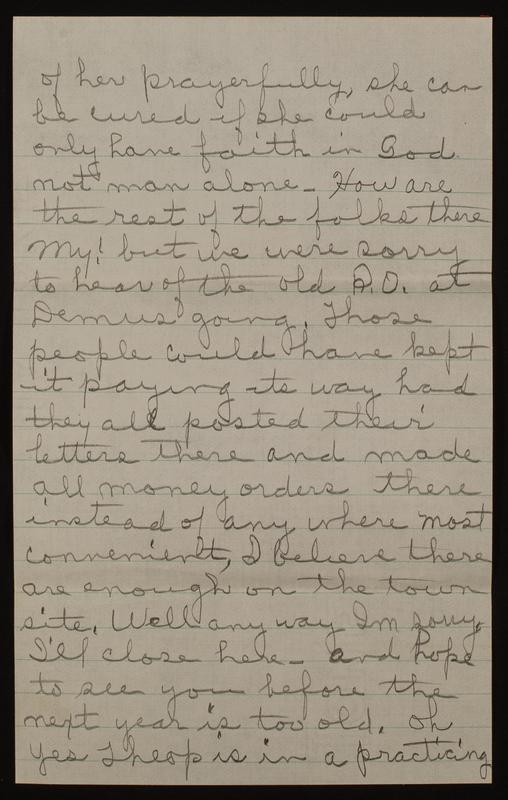 of her prayerfully, she can
be cured if she could
only have faith in God
not man alone - How are
the rest of the folks there
My! but we were sorry
to hear of the old P.O. at
Demus going. Those
people could have kept
it paying its way had
they all posted their
letters there and made
all money orders there
instead of any where most
convenient, I believe there
are enough on the town
site. Well any way Im sorry.
I'll close here - and hope
to see you before the
next year is too old. Oh
yes is in a practicing